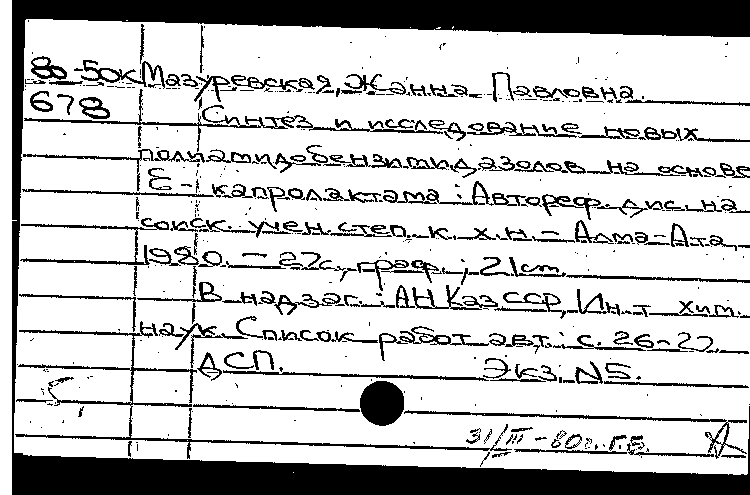 80-50к Мазуревская, Жанна Павловна.
678 Синтез и исследование новых
полиамидобензимидазолов на основе
Ɛ- капролактама : Автореф. дис. на
соиск. учен. степ. к. х. н. – Алма-Ата,
1980. – 22с., граф. ; 21cm.
В надзаг. : АН КазССР, Ин-т хим.
наук. Список работ авт.: с. 26-27
ДСП. Экз. N5.
5,
31/III-80г. Г.Б.